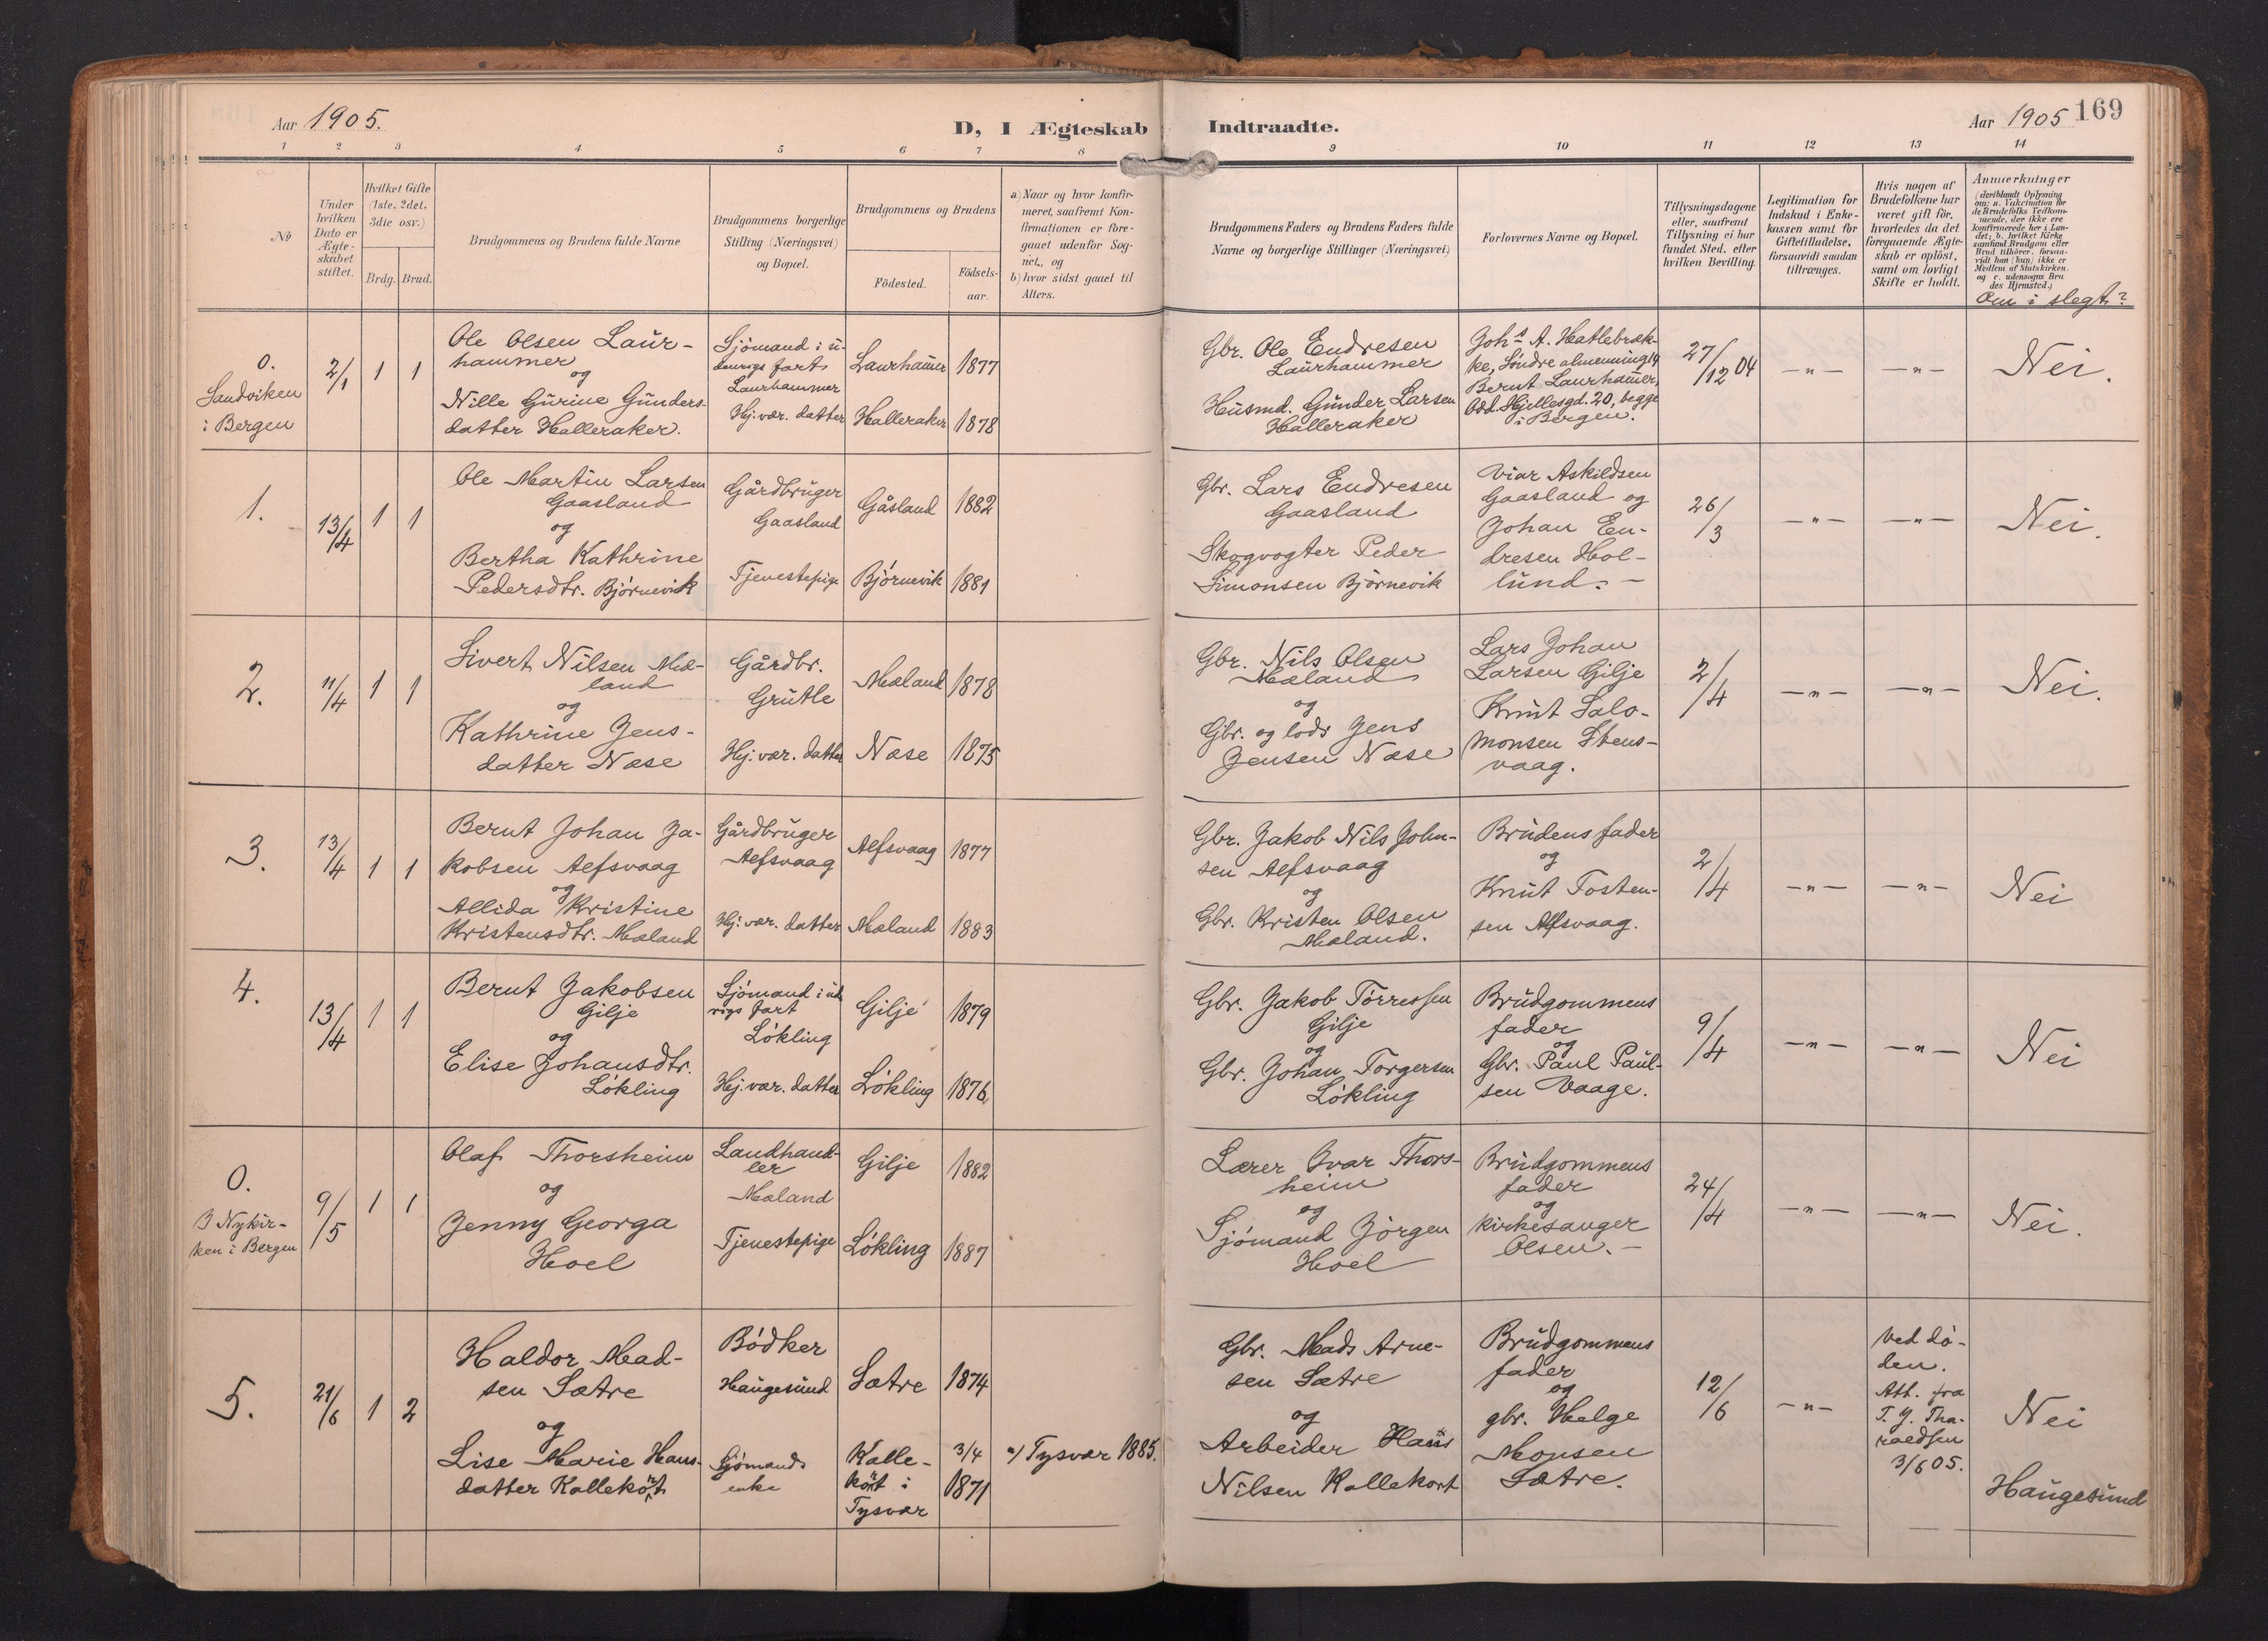 Aar 1905.
D, I Ægteskab Indtraadte.
Aar 1905 169
1 2 3 4 5 6 7 8 9 10 11 12 13 14
No
Under
hvilken
Dato er
Ægte-
skabet
stiftet.
Hvilket Gifte
(1ste, 2det,
3die osv.)
Brdg. Brud.
Brudgommens og Brudens fulde Navne
Brudgommens borgerlige
Stilling (Næringsvei)
og Bopæl.
Brudgommens og Brudens
Födested.
Födsels-
aar.
a) Naar og hvor konfir-
meret, saafremt Kon-
firmationen er fore-
gaaet udenfor Sog-
net, og
b) hvor sidst gaaet til
Alters.
Brudgommens Faders og Brudens Faders fulde
Navne og borgerlige Stillinger (Næringsvei)
Forlovernes Navne og Bopæl.
Tillysningsdagene
eller, saafremt
Tillysning ei har
fundet Sted, efter
hvilken Bevilling.
Legitimation for
Indskud i Enke-
kassen samt for
Giftetilladelse,
forsaavidt saadan
tiltrænges.
Hvis nogen af
Brudefolkene har
været gift för,
hvorledes da det
foregaaende Ægte-
skab er oplöst,
samt om lovligt
Skifte er holdt.
Anmærkninger
(deriblandt Oplysning
om: a. Vakcination for
de Brudefolks Vedkom-
mende, der ikke ere
konfirmerede her i Lan-
det; b. hvilket Kirke
samfund Brudgom eller
Brud tilhörer, forsaa-
vidt han (hun) ikke er
Medlem af Statskirken.
og c. udensogns Bru
des Hjemsted.)
Om i slegt?
0.
Sandviken
i Bergen
2/1
1 1
Ole Olsen Laur-
hammer
og
Nille Gurine Gunders-
datter Halleraker.
Sjömand i u-
denrigs fart
Laurhammer
Hj. vær. datter
Laurhammer 1877
Halleraker 1878
Gbr. Ole Endresen
Laurhammer
Husmd. Gunder Larsen
Halleraker
Johs A. Hatlebrek-
ke, Söndre almenning 14
Bernt Laurhammer,
Odd. Hjellesgd. 20, begge
i Bergen.
27/12 04
— " —
— " —
Nei.
1.
13/4
1 1
Ole Martin Larsen
Gaasland
og
Bertha Kathrine
Pedersdtr. Björnevik
Gårdbruger
Gaasland
Tjenestepige
Gåsland 1882
Björnevik 1881
Gbr. Lars Endresen
Gaasland
Skogvogter Peder
Simonsen Björnevik
Viar Askildsen
Gaasland og
Johan En-
dresen Hol-
lund. —
26/3
— " —
— " —
Nei.
2.
11/4
1 1
Sivert Nilsen Mæ-
land
og
Kathrine Jens-
datter Næse
Gårdbr.
Grutle
Hj. vær. datter
Mæland 1878
Næse 1875
Gbr. Nils Olsen
Mæland
og
Gbr. og lods Jens
Jensen Næse
Lars Johan
Larsen Gilje
Knut Salo-
monsen Stens-
vaag.
2/4
— " —
— " —
Nei.
3.
13/4
1 1
Bernt Johan Ja-
kobsen Alfsvaag
og
Allida Kristine
Kristensdtr. Mæland
Gårdbruger
Alfsvaag
Hj. vær. datter
Alfsvaag 1877
Mæland 1883
Gbr. Jakob Nils John-
sen Alfsvaag
og
Gbr. Kristen Olsen
Mæland.
Brudens fader
og
Knut Tosten-
sen Alfsvaag.
2/4
— " —
— " —
Nei
4.
13/4
1 1
Bernt Jakobsen
Gilje
og
Elise Johansdtr.
Lökling
Sjömand i ud
rigs fart
Lökling
Hj. vær. datter
Gilje 1879
Lökling 1876
Gbr. Jakob Törressen
Gilje
og
Gbr. Johan Torgersen
Lökling
Brudgommens
fader
og
Gbr. Paul Paul-
sen Vaage.
9/4
— " —
— " —
Nei
0.
I Nykir-
ken i Bergen
9/5
1 1
Olaf Thorsheim
og
Jenny Georga
Hoel
Landhand-
ler
Mæland
Tjenestepige
Gilje 1882
Lökling 1887
Lærer Ivar Thors-
heim
og
Sjömand Jörgen
Hoel
Brudgommens
fader
og
kirkesanger
Olsen. —
24/4
— " —
— " —
Nei.
5.
21/6
1 2
Haldor Mad-
sen Sætre
og
Lise Marie Hans-
datter Kallekört
Bödker
Haugesund
Sjömands
enke
Sætre 1874
Kalle-
kört i
Tysvær
3/4
1871
a) Tysvær 1885.
Gbr. Mads Arne-
sen Sætre
og
Arbeider Hans
Nilsen Kallekort
Brudgommens
fader
og
gbr. Helge
Monsen
Sætre.
12/6
— " —
Ved dö-
den.
Att. fra
T. J. Tha-
raldsen
3/6 05.
Nei
Haugesund